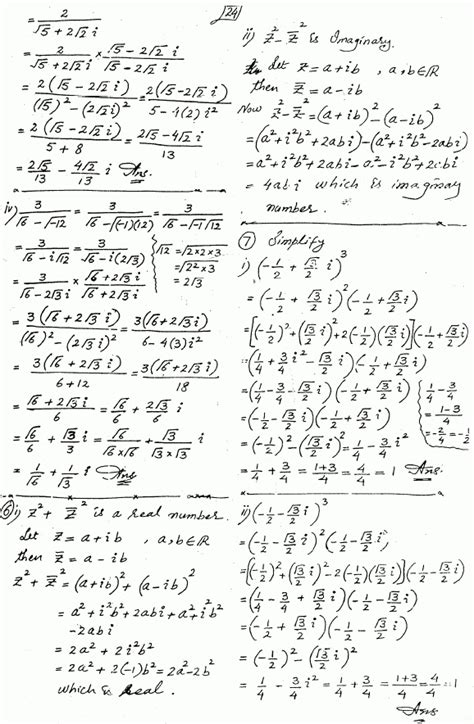 24
= 2 / (√5 + 2√2 i)
= 2 / (√5 + 2√2 i) × (√5 - 2√2 i) / (√5 - 2√2 i)
= 2(√5 - 2√2 i) / ((√5)² - (2√2 i)²) = 2(√5 - 2√2 i) / (5 - 4(2) i²)
= 2(√5 - 2√2 i) / (5 + 8) = (2√5 - 4√2 i) / 13
= 2√5/13 - 4√2/13 i Ans.
iv) 3 / (√6 - √-12) = 3 / (√6 - √(-1)(12)) = 3 / (√6 - √-1 √12)
= 3 / (√6 - i√12) = 3 / (√6 - i(2√3))
√12 = √2×2×3
= √2²×3
= 2√3
= 3 / (√6 - 2√3 i) × (√6 + 2√3 i) / (√6 + 2√3 i)
= 3(√6 + 2√3 i) / ((√6)² - (2√3 i)²) = 3(√6 + 2√3 i) / (6 - 4(3) i²)
= 3(√6 + 2√3 i) / (6 + 12) = 3(√6 + 2√3 i) / 18
= (√6 + 2√3 i) / 6 = √6/6 + 2√3/6 i
= √6/6 + √3/3 i = √6/(√6 × √6) + √3/(√3 × √3) i
= 1/√6 + 1/√3 i Ans
6 i) z² + z̄² is a real number.
Let z = a + ib , a, b ∈ R
then z̄ = a - ib
z² + z̄² = (a + ib)² + (a - ib)²
= a² + i²b² + 2abi + a² + i²b²
- 2abi
= 2a² + 2i²b²
= 2a² + 2(-1)b² = 2a² - 2b²
which is real.
ii) z² - z̄² is Imaginary.
Let z = a + ib , a, b ∈ R
then z̄ = a - ib
Now z² - z̄² = (a + ib)² - (a - ib)²
= (a² + i²b² + 2abi) - (a² + i²b² - 2abi)
= a² + i²b² + 2abi - a² - i²b² + 2abi
= 4abi which is imaginary
number.
7 Simplify
i) (-1/2 + √3/2 i)³
= (-1/2 + √3/2 i)² (-1/2 + √3/2 i)
= [(-1/2)² + (√3/2 i)² + 2(-1/2)(√3/2 i)] (-1/2 + √3/2 i)
= (1/4 + 3/4 i² - √3/2 i)(-1/2 + √3/2 i)
= (1/4 - 3/4 - √3/2 i)(-1/2 + √3/2 i)
1/4 - 3/4
= (1-3)/4
= -2/4 = -1/2
= (-1/2 - √3/2 i)(-1/2 + √3/2 i)
= (-1/2)² - (√3/2 i)² = 1/4 - 3/4 i²
= 1/4 + 3/4 = (1+3)/4 = 4/4 = 1 Ans.
ii) (-1/2 - √3/2 i)³
= (-1/2 - √3/2 i)² (-1/2 - √3/2 i)
= [(-1/2)² + (√3/2 i)² - 2(-1/2)(√3/2 i)] (-1/2 - √3/2 i)
= (1/4 - 3/4 + √3/2 i)(-1/2 - √3/2 i)
= (-1/2 + √3/2 i)(-1/2 - √3/2 i)
= (-1/2)² - (√3/2 i)²
= 1/4 - 3/4 i² = 1/4 + 3/4 = (1+3)/4 = 4/4 = 1
Ans